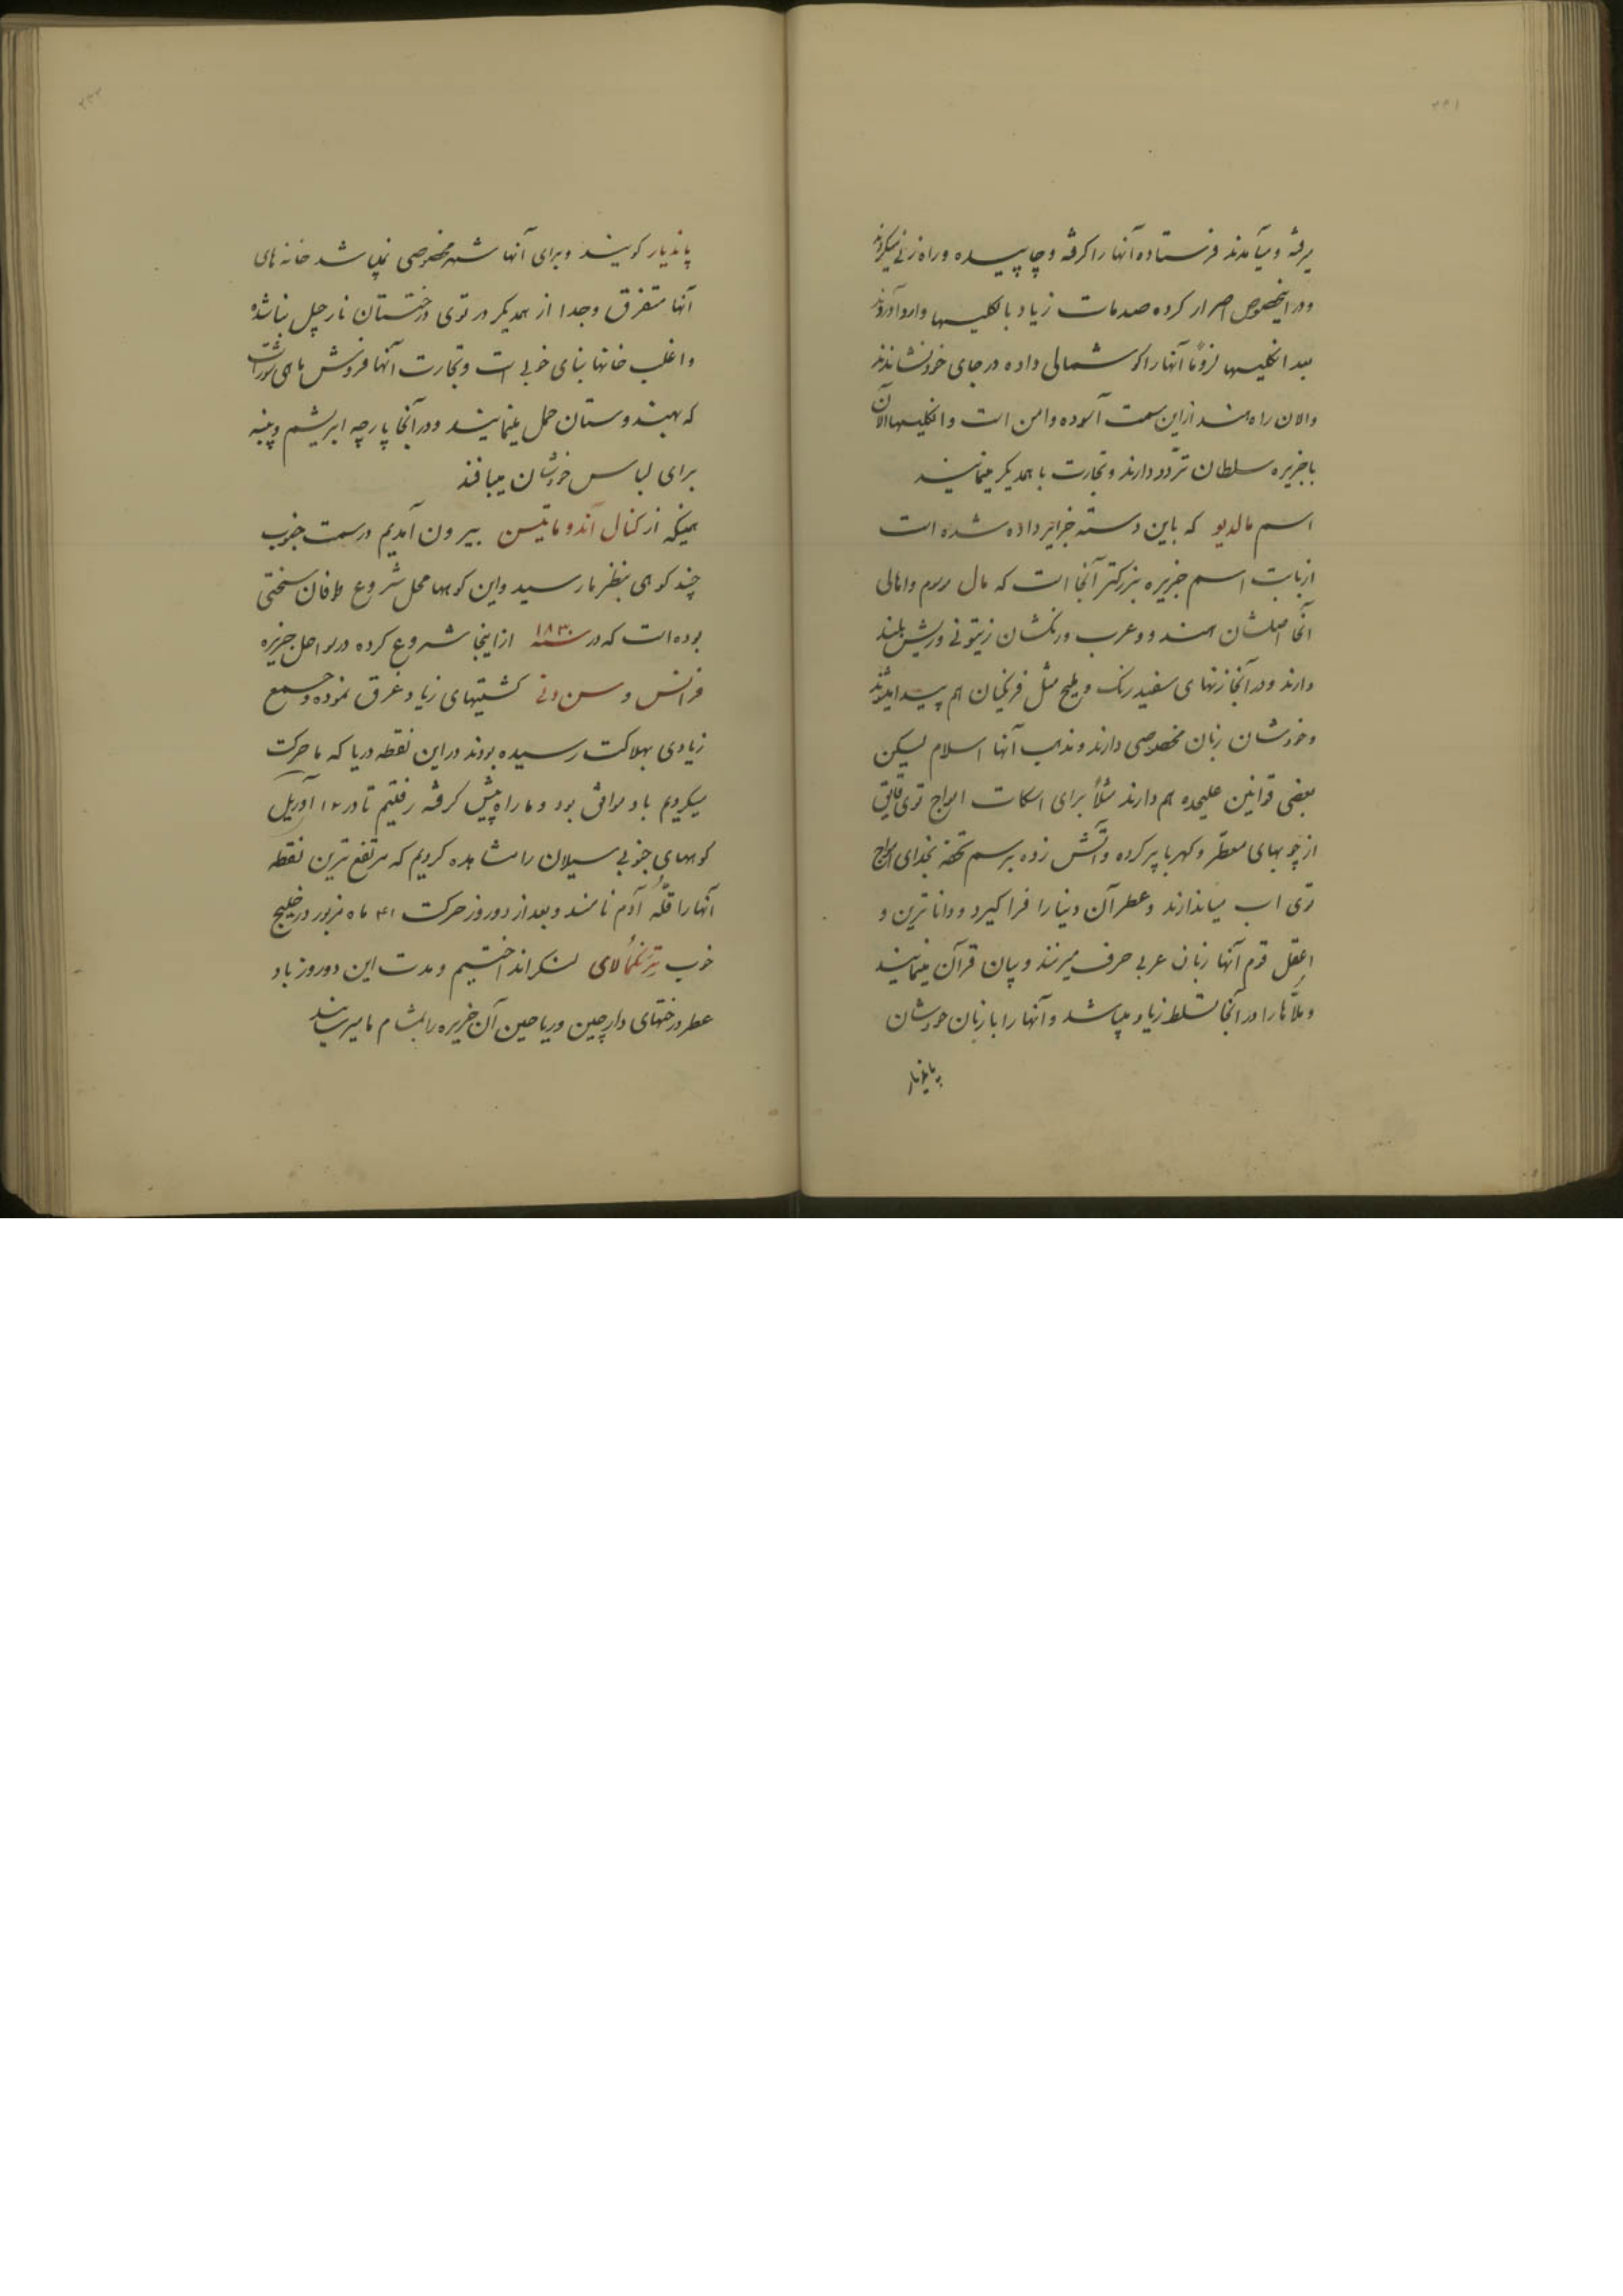 ۲۳۱
میرفته و میآمدند فرستاده آنها را گرفته و چاپیده و راه زنی میکردند
و در اینخصوص اصرار کرده صدمات زیاد بانگلیسها وارد آوردند
بعد انگلیسها لزوماً آنها را گوشمالی داده در جای خود نشاندند
والان راه هند از این سمت آسوده و امن است و انگلیسها الان
با جزیره سلطان تردد دارند و تجارت با همدیگر مینمایند
اسم مالدیو که باین دسته جزایر داده شده است
از بابت اسم جزیره بزرکتر آنجا است که مال رسوم و اهالی
آنجا اصلشان هند و و عرب و رنکشان زیتونی و ریش بلند
دارند و در آنجا زنهای سفید رنک و ملیح مثل فرنکیان هم پیدا میشوند
و خودشان زبان مخصوصی دارند و مذهب آنها اسلام لیکن
بعضی قوانین علیحده هم دارند مثلاً برای اسکات امواج توی قایق
از چوبهای معطر و کهربا پر کرده و آتش زده برسم تحفه بخدای امواج
توی اب میاندازند و عطر آن دنیا را فرا کیرد و دانا ترین و
اعقل قوم آنها زبان عربی حرف میزنند و بیان قرآن مینمایند
و ملّا ها را در آنجا تسلط زیاد میباشد و آنها را با زبان خودشان
پاندیار
۲۳۲
پاندیار کویند و برای آنها شهر مخصوصی نمیباشد خانه های
آنها متفرق و جدا از همدیکر در توی درختستان نارجیل بنا شده
و اغلب خانها بنای خوبی است و تجارت آنها فروش ماهی شور است
که بهندوستان حمل مینمایند و در آنجا پارچه ابریشم و پنبه
برای لباس خودشان میبافند
همینکه از کنال آندو ماتیسن بیرون آمدیم در سمت جنوب
چند کوهی بنظر ما رسید و این کوهها محل شروع طوفان سختی
بوده است که در سنه ۱۸۳۰ از اینجا شروع کرده در سواحل جزیره
فرانس و سن دنی کشتیهای زیاد غرق نموده و جمع
زیادی بهلاکت رسیده بودند در این نقطه دریا که ما حرکت
میکردیم باد موافق بود و ما راه پیش کرفته رفتیم تا در ۱۲ آوریل
کوههای جنوبی سیلان را مشاهده کردیم که مرتفع ترین نقطه
آنها را قلّه آدم نامند و بعد از دو روز حرکت ماه مزبور در خلیج
خوب لنکر انداختیم و مدت این دو روز باد
عطر درختهای دارچین و ریاحین آن جزیره را بمشام ما میرسانید